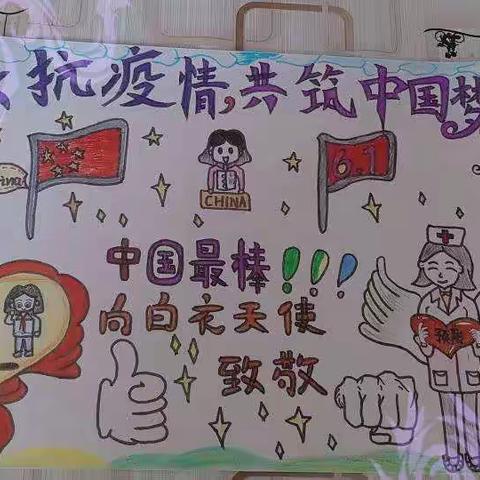 抗疫情,共筑中国梦
6.1
CHINA
中国最棒!!!
向白衣天使
致敬
预防